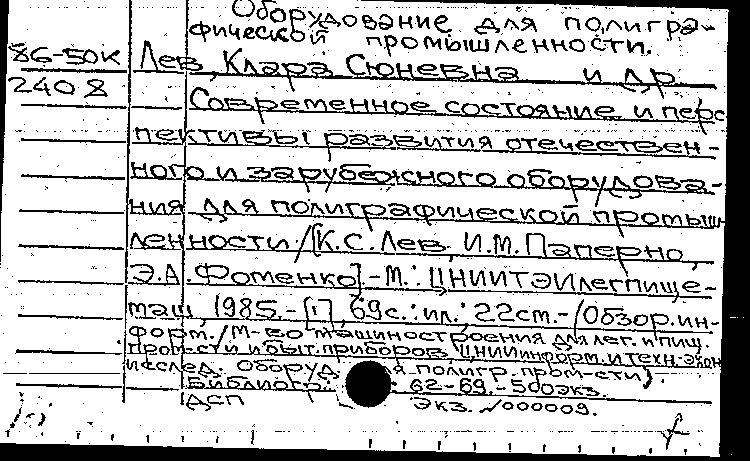 Оборудование для полигра-
фической промышленности.
86-50К Лев, Клара Сюневна и др.
2408 Современное состояние и перс
пективы развития отечествен-
ного и зарубежного оборудова-
ния для полиграфической промыш
ленности / [К.С. Лев, И.М. Паперно,
Э.А. Фоменко]. - М.: ЦНИИТЭИлегпище-
таш, 1985. - [1], 69с.: ил.; 22см. - (Обзор. ин-
форм. / М-во машиностроения для лег. и пищ.
пром-сти и быт. приборов, ЦНИИ информ. и техн.-экон
исслед. Оборуд. я полигр. пром-сти).
Библиогр.: 62-69. - 500экз.
ДСП экз. №000009.